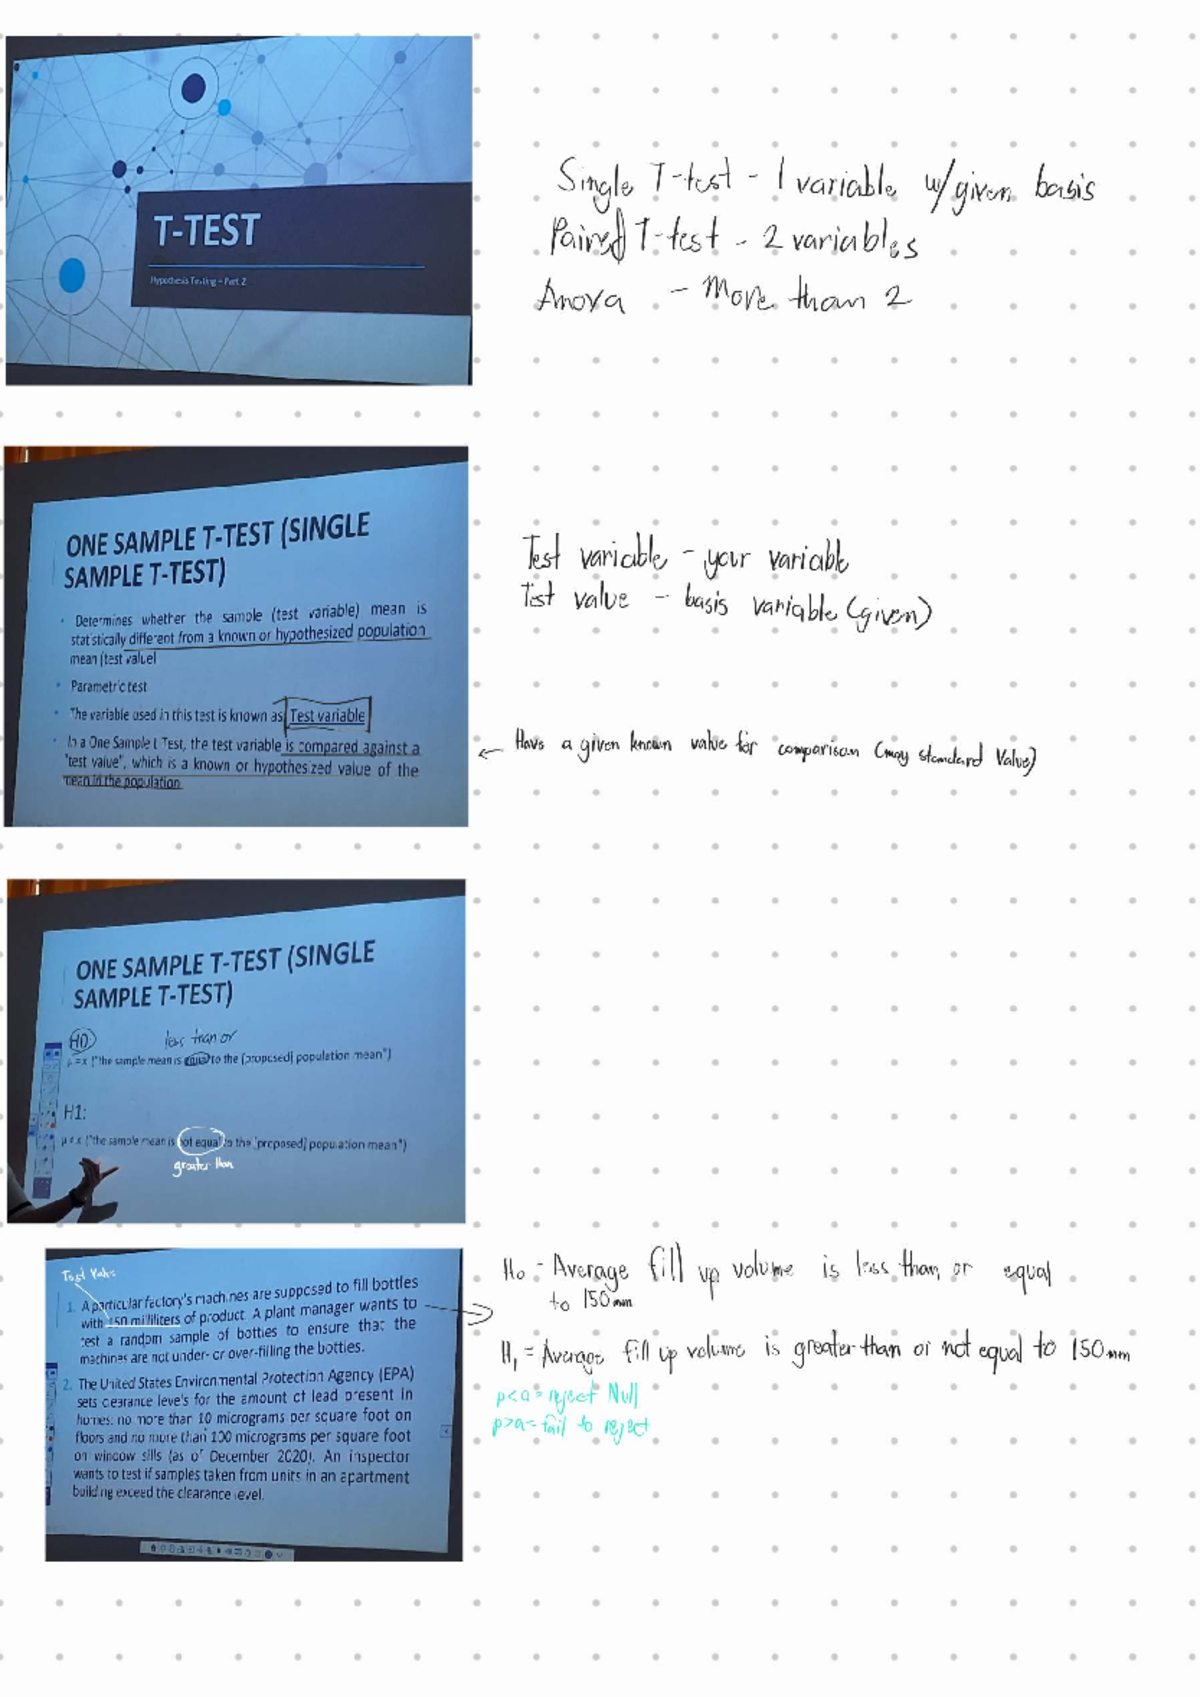 T-TEST
Hypothesis Testing - Part 2
Single T-test - 1 variable w/given basis
Paired T-test - 2 variables
Anova - More than 2
ONE SAMPLE T-TEST (SINGLE
SAMPLE T-TEST)
Determines whether the sample (test variable) mean is
statistically different from a known or hypothesized population
mean (test value)
Parametric test
The variable used in this test is known as Test variable
In a One Sample t Test, the test variable is compared against a
"test value", which is a known or hypothesized value of the
mean in the population
Test variable - your variable
Test value - basis variable (given)
← Have a given known value for comparison (may standard Value)
ONE SAMPLE T-TEST (SINGLE
SAMPLE T-TEST)
H0:
less than or
µ = x ("the sample mean is equal to the [proposed] population mean")
H1:
µ ≠ x ("the sample mean is not equal to the [proposed] population mean")
greater than
Test Value
1. A particular factory's machines are supposed to fill bottles
with 150 milliliters of product. A plant manager wants to
test a random sample of bottles to ensure that the
machines are not under- or over-filling the bottles.
2. The United States Environmental Protection Agency (EPA)
sets clearance levels for the amount of lead present in
homes: no more than 10 micrograms per square foot on
floors and no more than 100 micrograms per square foot
on window sills (as of December 2020). An inspector
wants to test if samples taken from units in an apartment
building exceed the clearance level.
Ho - Average fill up volume is less than or equal
to 150mm
H1 = Average fill up volume is greater than or not equal to 150mm
p<a = reject Null
p>a = fail to reject